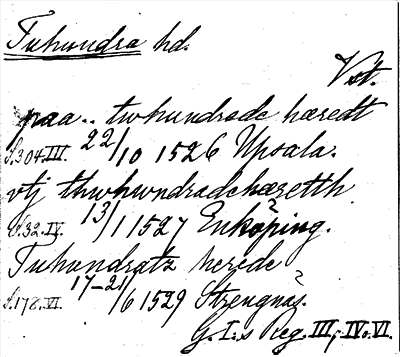 Tuhundra hd.
Vst.
paa .. twhundrade hæredt
S. 304. III. 22/10 1526 Upsala.
vtj thwhwndradehæretth
S. 32. IV. 13/1 1527 Enköping.
Tuhundratz herede
S. 178. VI. 17-21/6 1529 Strengnäs.
G. I:s Reg. III, IV o. VI.